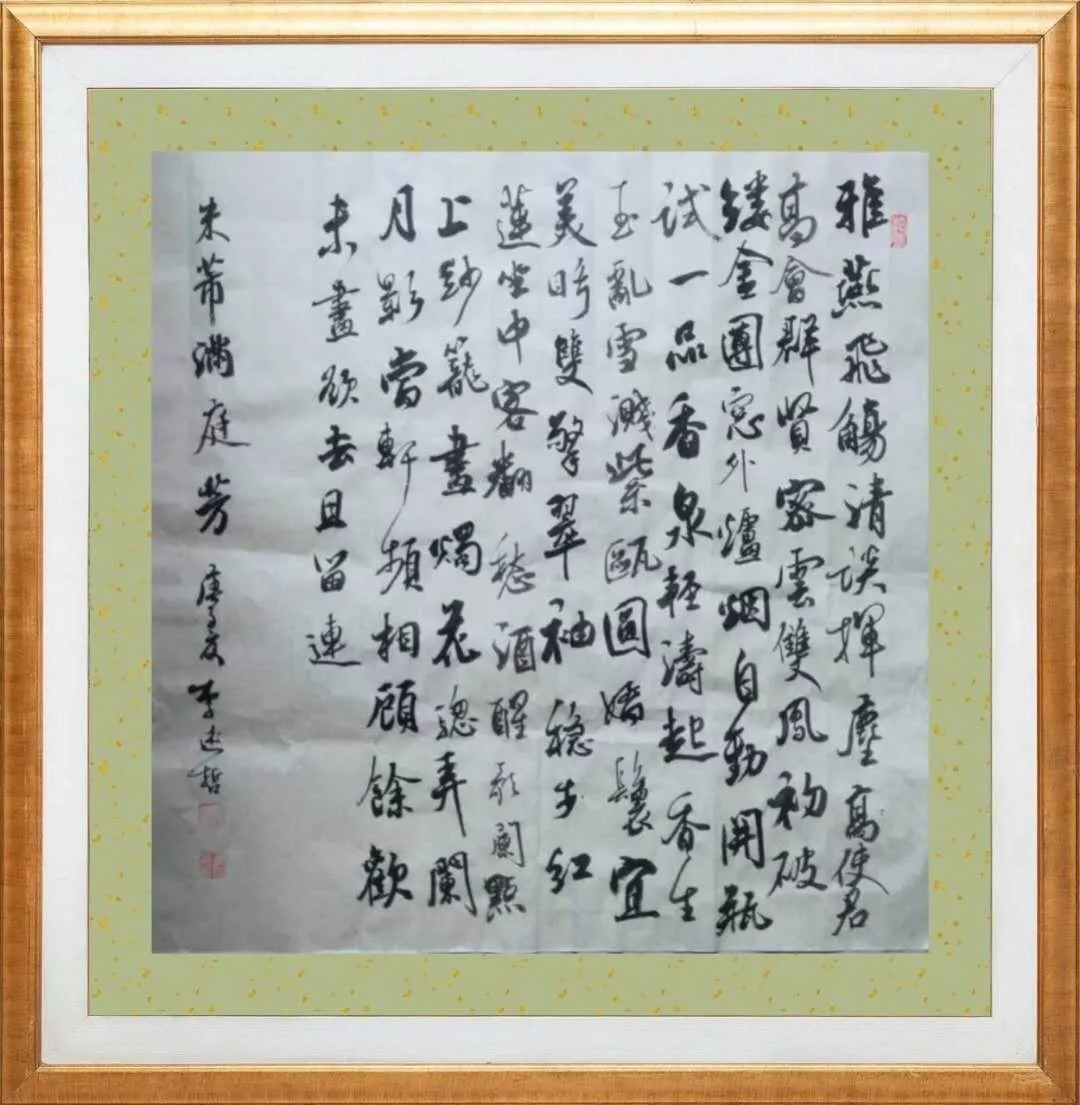 雅燕飛觴清談揮麈高使君
高會群賢密雲雙鳳初破
鏤金團窓外爐烟自動開瓶
試一品香泉輕濤起香生
玉亂雪濺紫甌圓嬌鬟宜
美盼雙擎翠袖穩步紅
蓮坐中客翻愁酒醒歌闌點
上紗籠畫燭花驄弄闌
月影當軒頻相顧餘歡
未盡欲去且留連
米芾滿庭芳 庚子夏 李